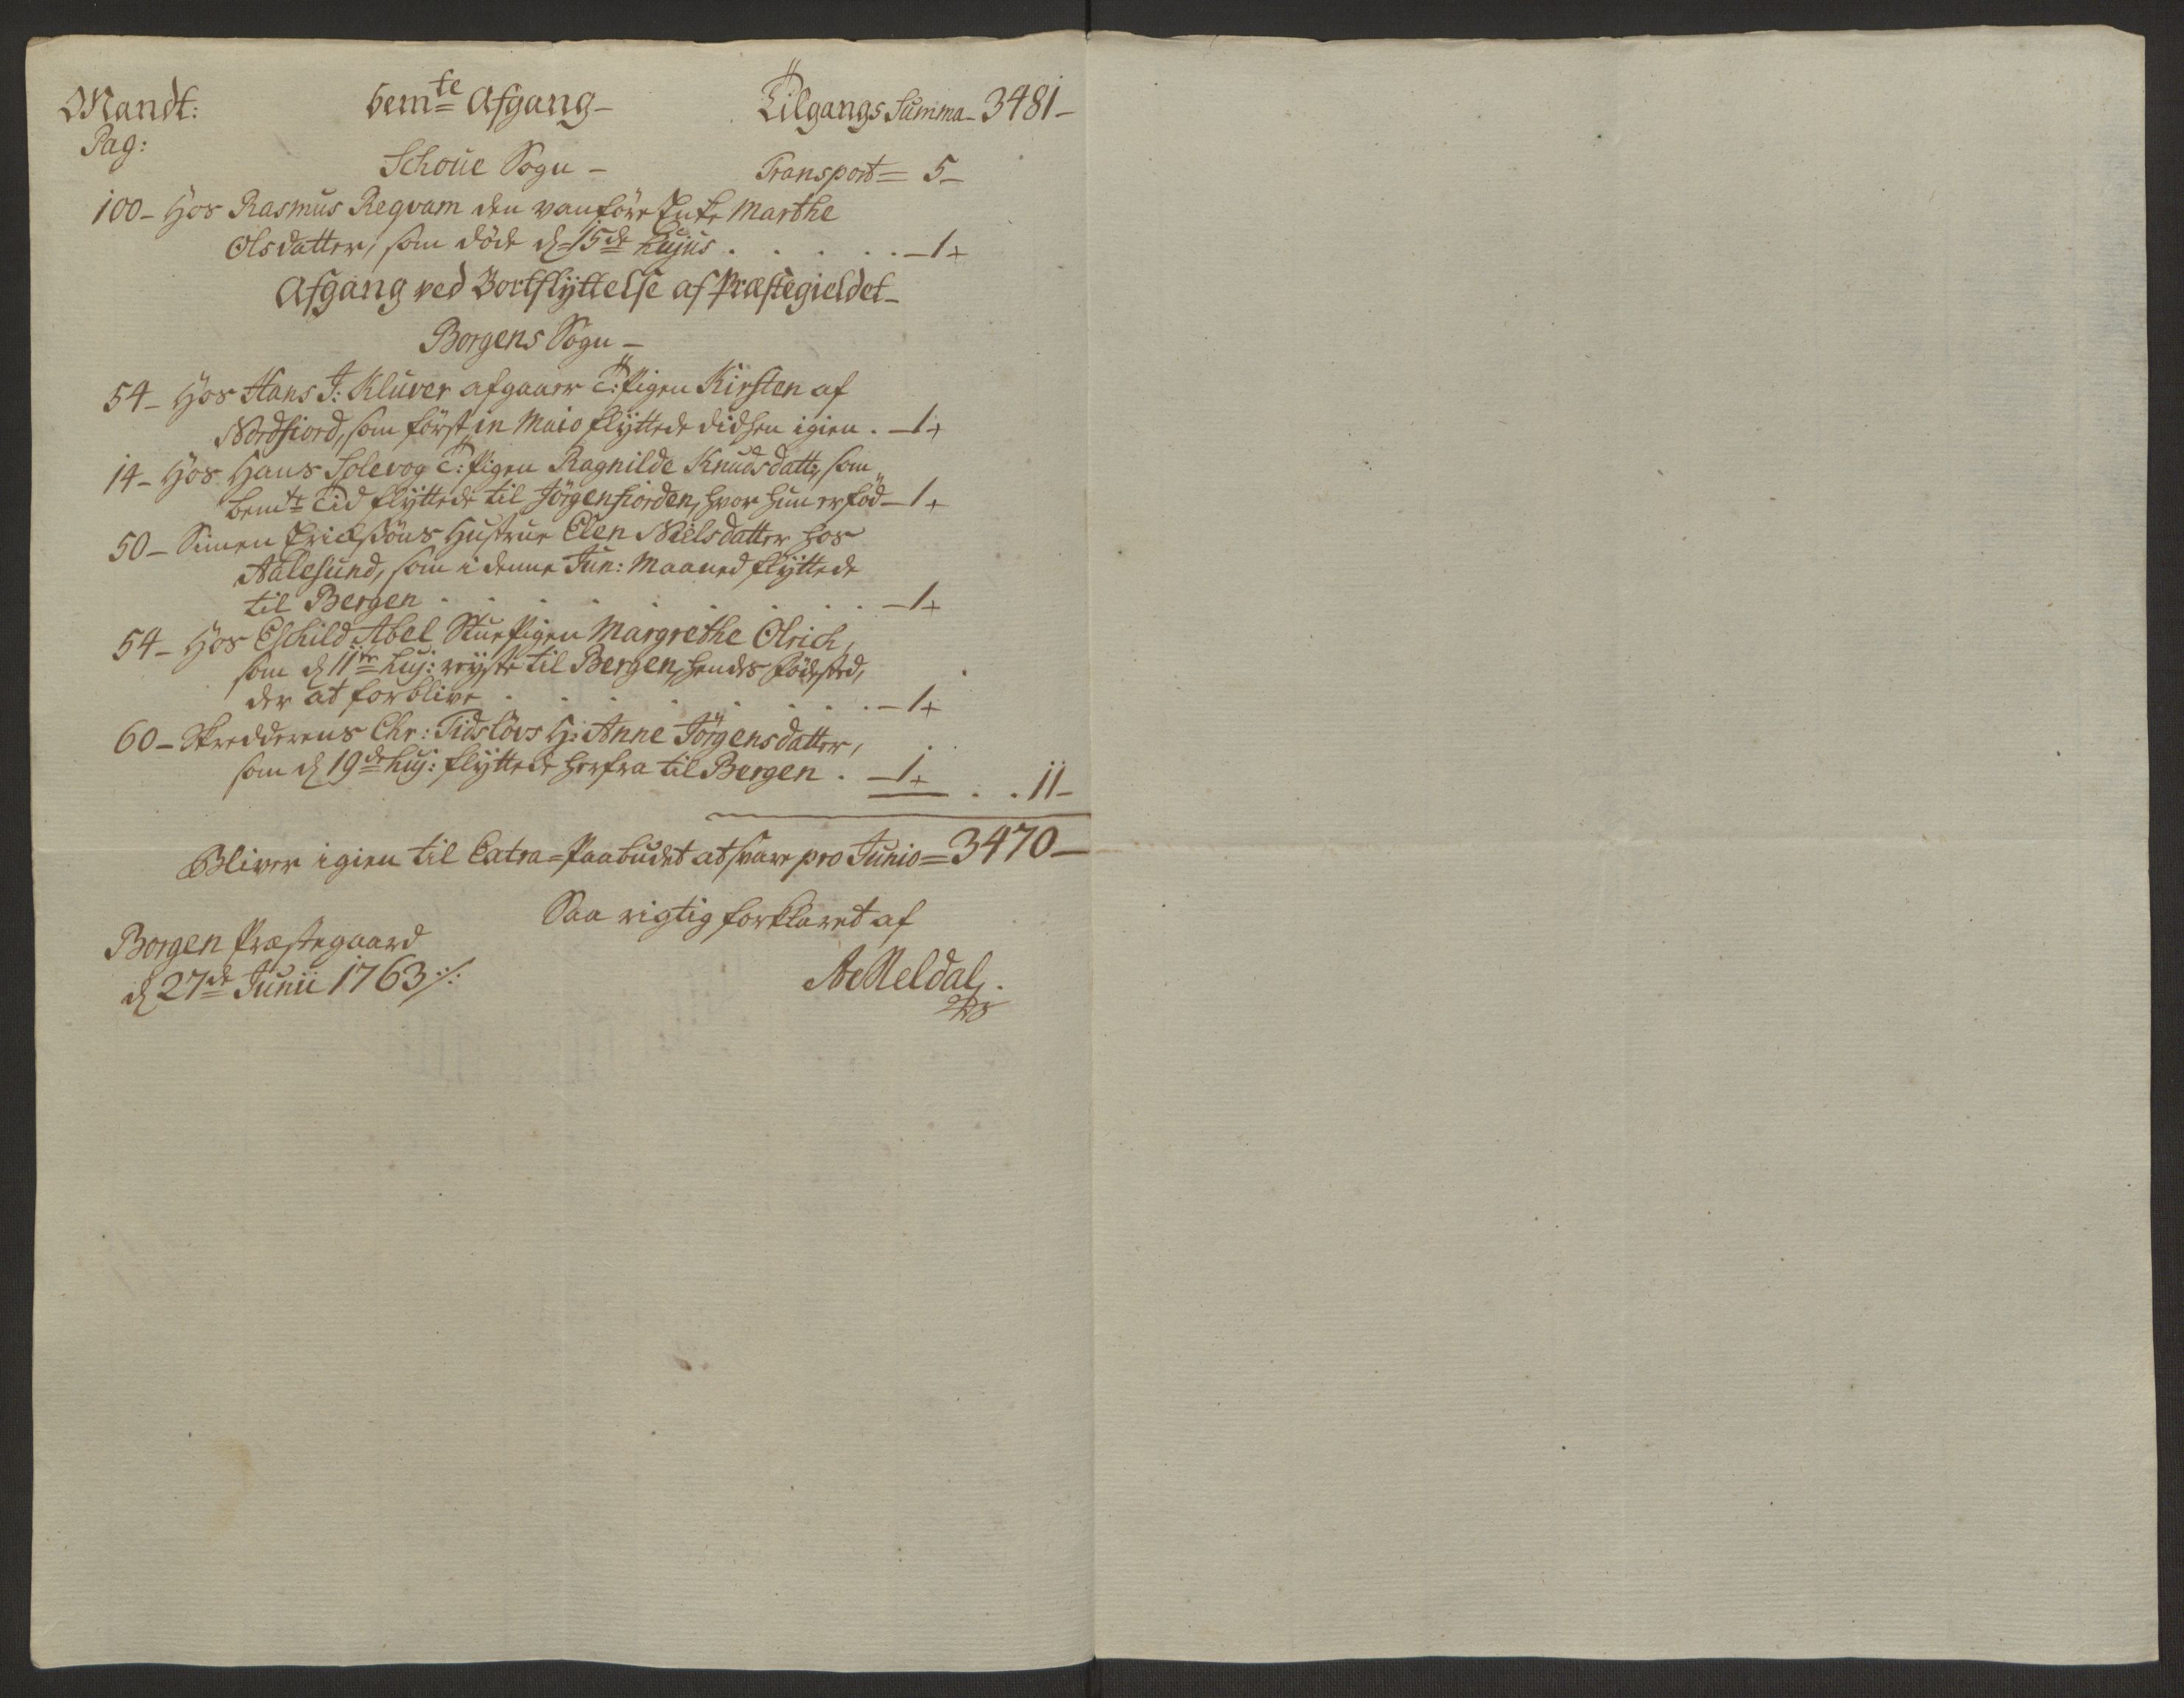 Mandt: bemte Afgang – Tilgangs Summa – 3481 –
Pag:
Schoue Sogn – Transport = 5 –
100 – Hos Rasmus Reqvam den vanföre Enke Marthe
Olsdatter, som döde d. 15de hujus . . . . . – 1 +
Afgang ved Bortflÿttelse af Præstegieldet –
Borgens Sogn –
54 – Hos Hans J: Klüver afgaaer T: Pigen Kirsten af
Nordfiord, som först in Maio flÿttede didhen igien . – 1 +
14 – Hos Hans Solevog T: Pigen Ragnilde Knudsdatt:, som
bemte Tid flÿttede til Jörgenfiorden, hvor hun er föd – 1 +
50 – Simen Erichsöns Hustrue Elen Nielsdatter hos
Aalesund, som i denne Jun: Maaned flÿttede
til Bergen . . . . . . . . – 1 +
54 – Hos Eschild Abel StuePigen Margrethe Olrich,
som d. 11te huj: reÿste til Bergen, hendes födested,
der at forblive . . . . . . . – 1 +
60 – Skredderens Chr: Tidslövs H: Anne Jörgensdatter,
som d. 19de huj: flÿttede herfra til Bergen . – 1 + . . 11 –
Bliver igien til Extra=Paabudet at svare pro Junio = 3470 –
Saa rigtig forklaret af
Borgen Præstegaard
d. 27de Junii 1763 ./. Meldal.